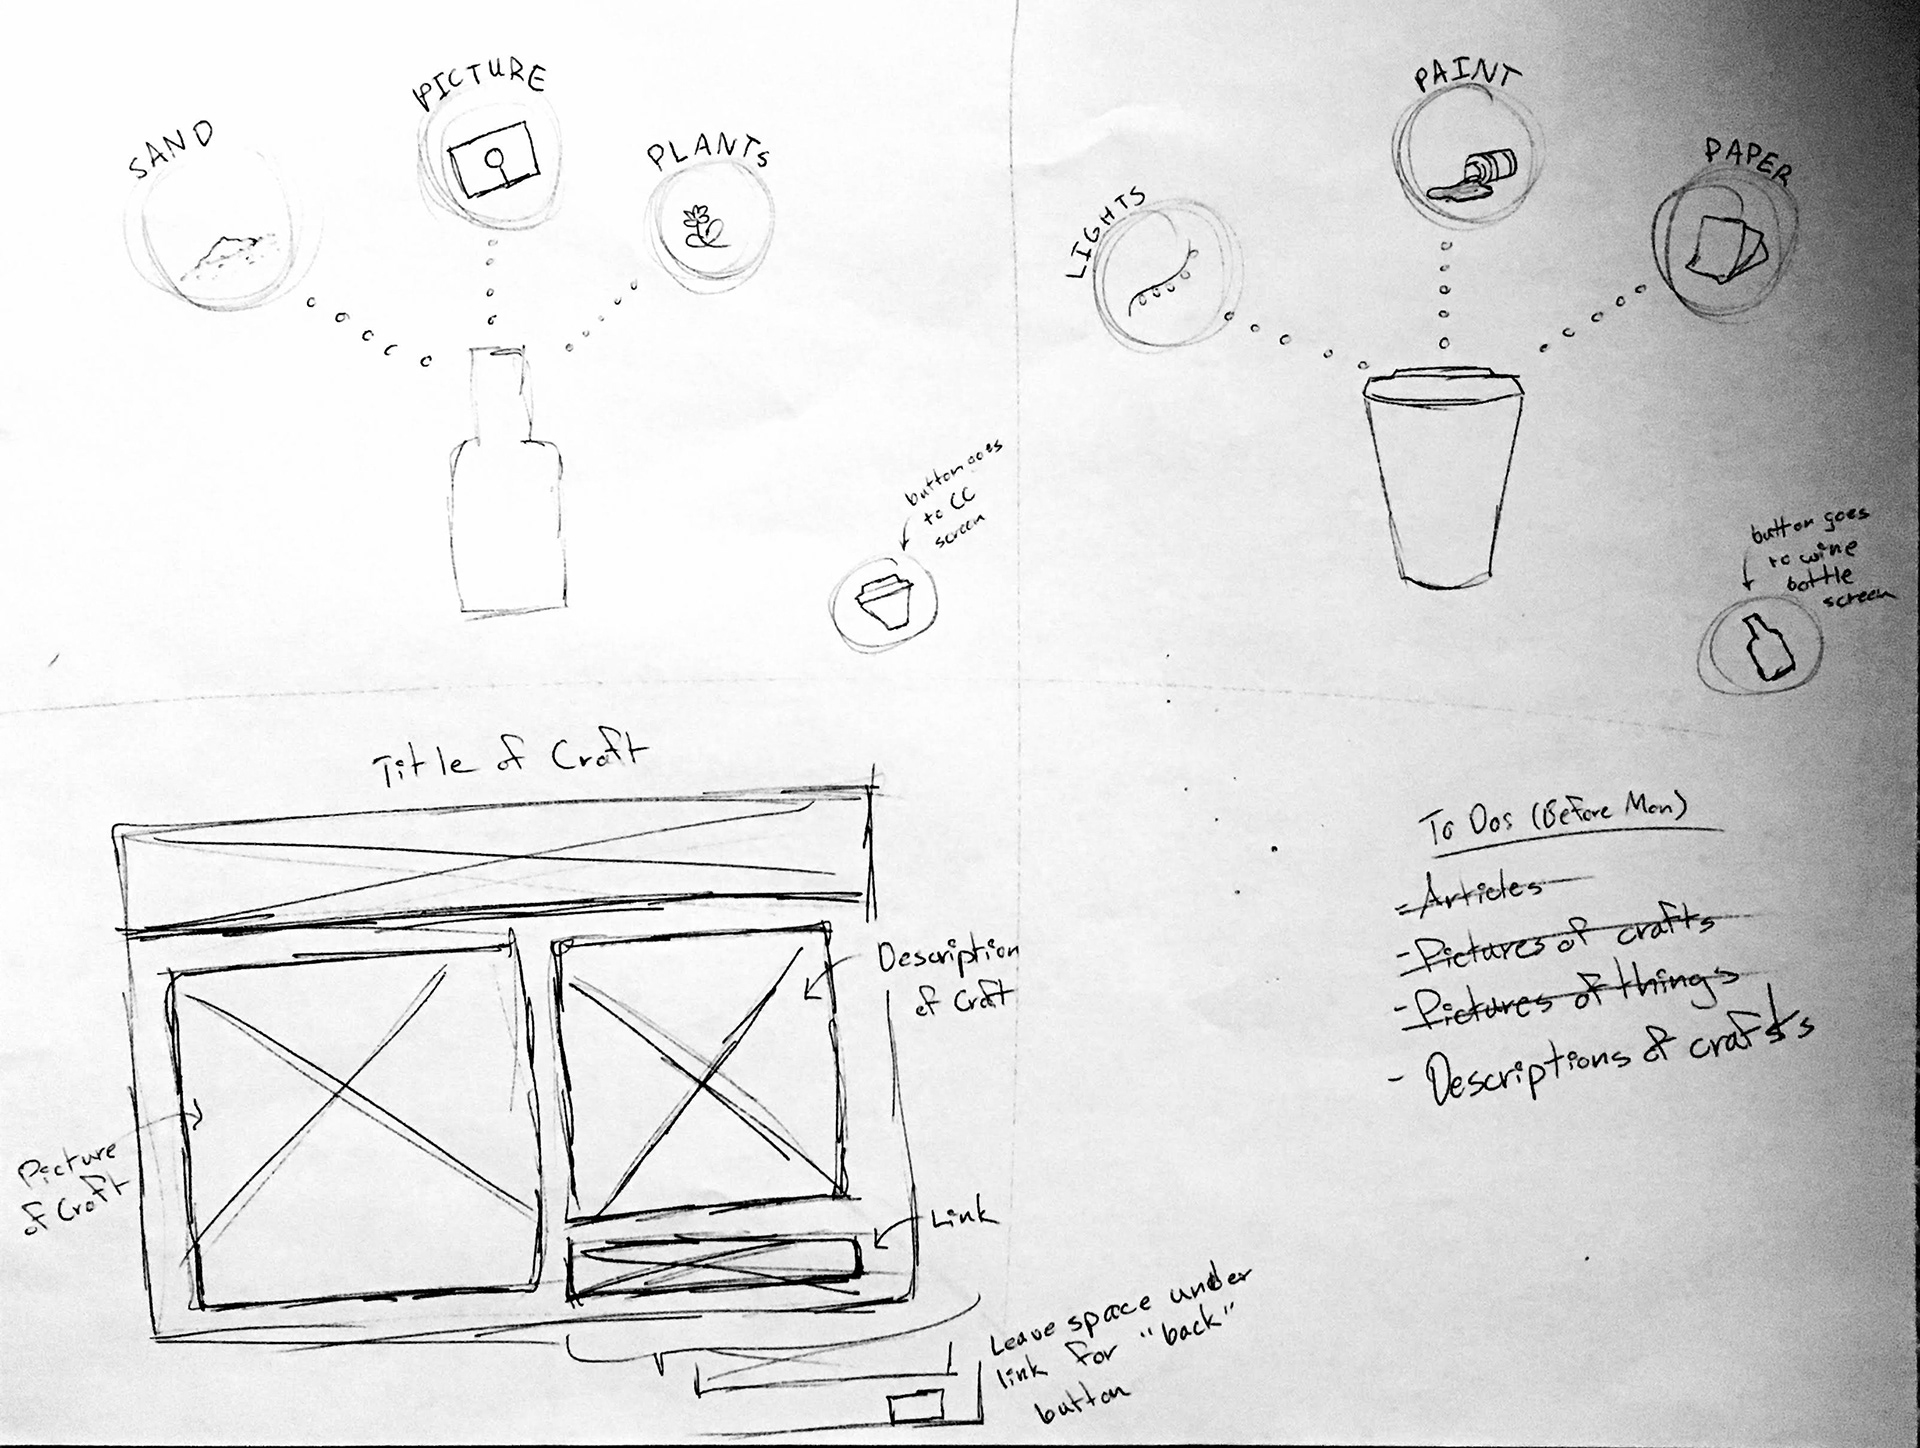 SAND
PICTURE
PLANTS
button goes
to CC
screen
LIGHTS
PAINT
PAPER
button goes
to wine
bottle
screen
Title of Craft
Description
of Craft
Picture
of Craft
Link
Leave space under
link for "back"
button
To Dos (Before Mon)
- Articles
- Pictures of crafts
- Pictures of things
- Descriptions of crafts